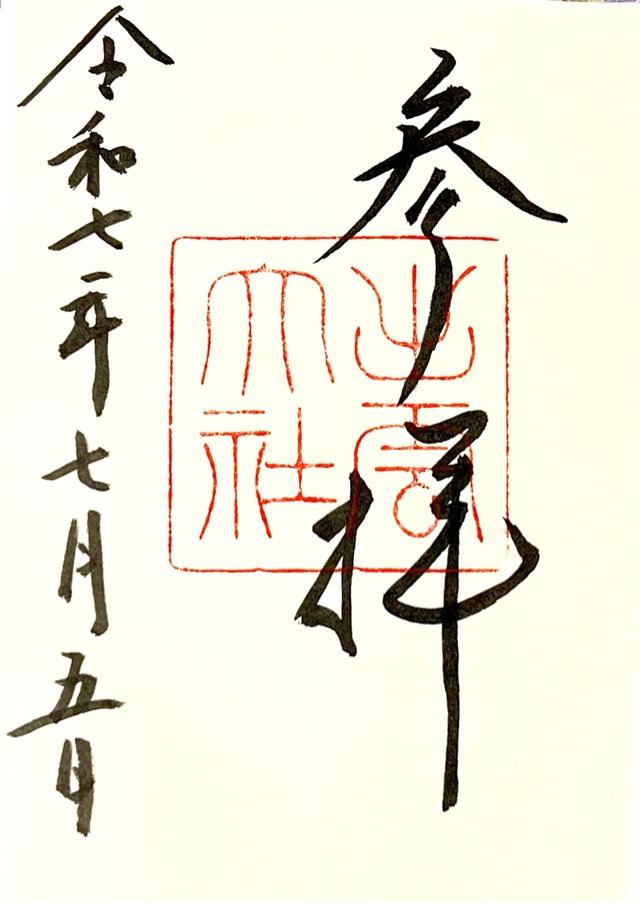 参拝
出雲
大社
令和七年七月五日